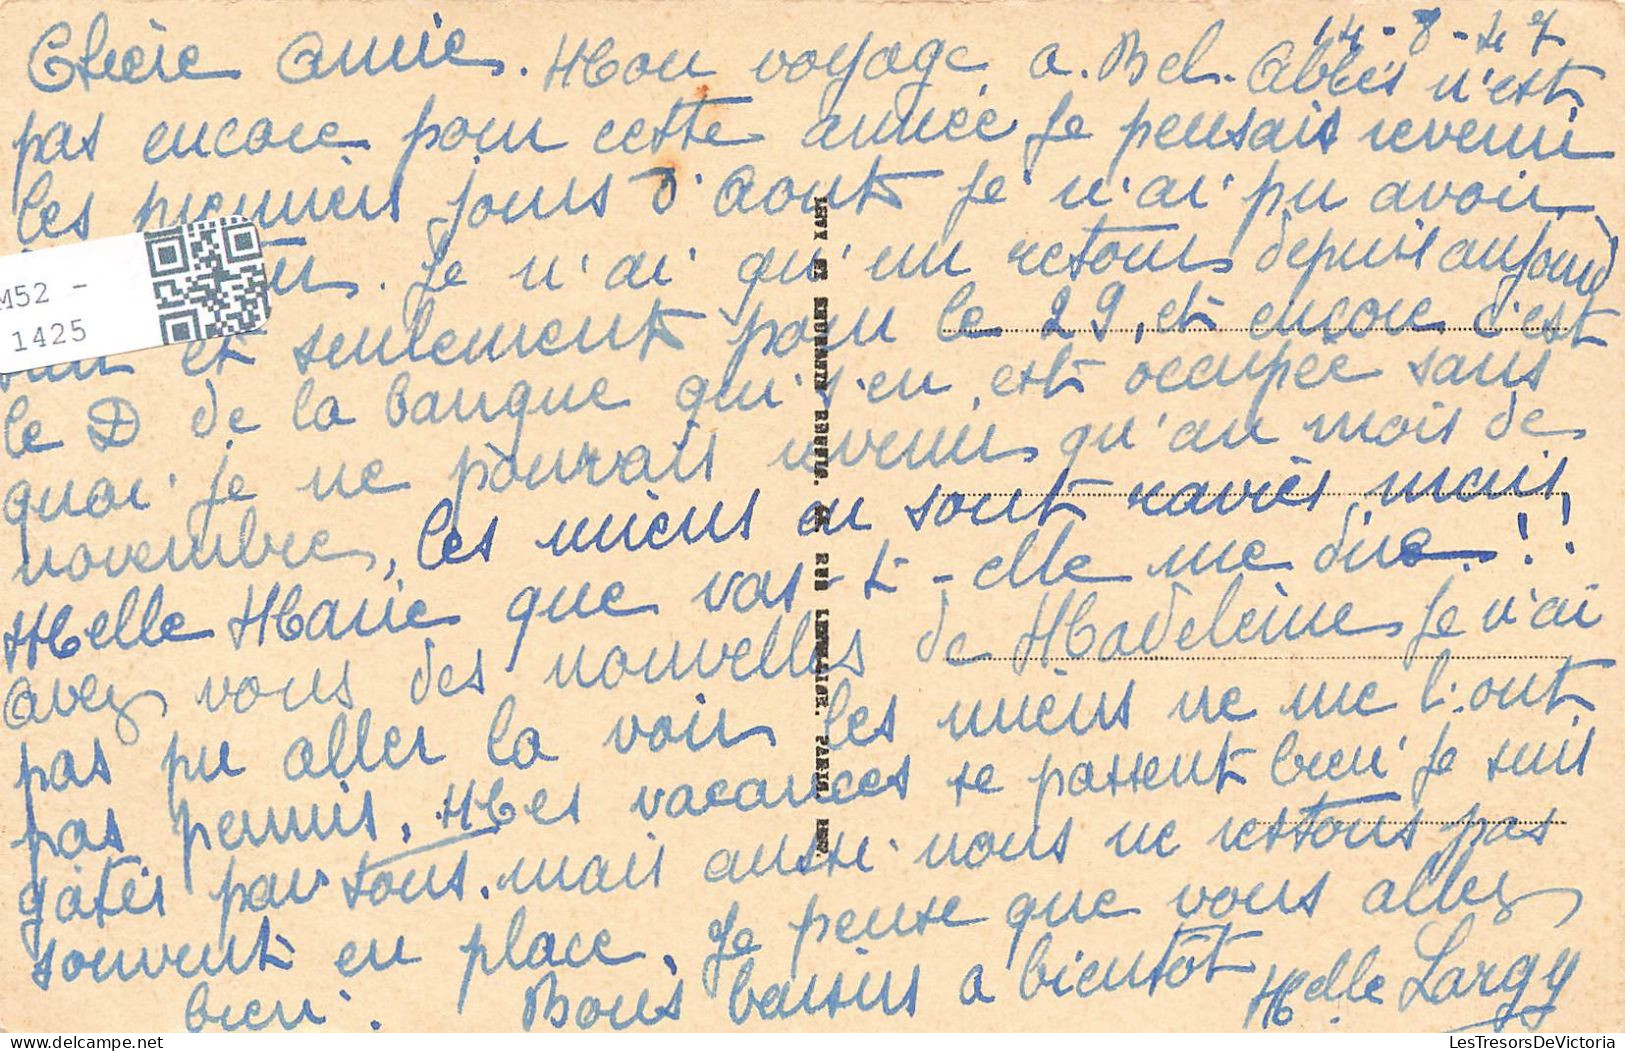 14-8-47
Chère Amie. Mon voyage a Bel-Abbès n'est
pas encore pour cette année je pensais revenir
les premiers jours d'Aout je n'ai pu avoir
je n'ai qu'un retour depuis aujourd
et seulement pour le 29, et encore c'est
le D de la banque qui s'en est occupée sans
quoi je ne pourrais revenir qu'au mois de
novembre, les miens en sont raviès mais
Melle Marie que vas-t-elle me dire !!
Avez vous des nouvelles de Madeleine je n'ai
pas pu aller la voir les miens ne me l'ont
pas permis. Mes vacances se passent bien je suis
gatèe par tous. mais aussi nous ne restons pas
souvent en place. Je pense que vous allez
bien. Bons baisers a bientôt Melle Largy
LEVY ET NEURDEIN REUNIS. 44 RUE LETELLIER. PARIS. IMP.
M52 -
1425
LesTresorsDeVictoria.com